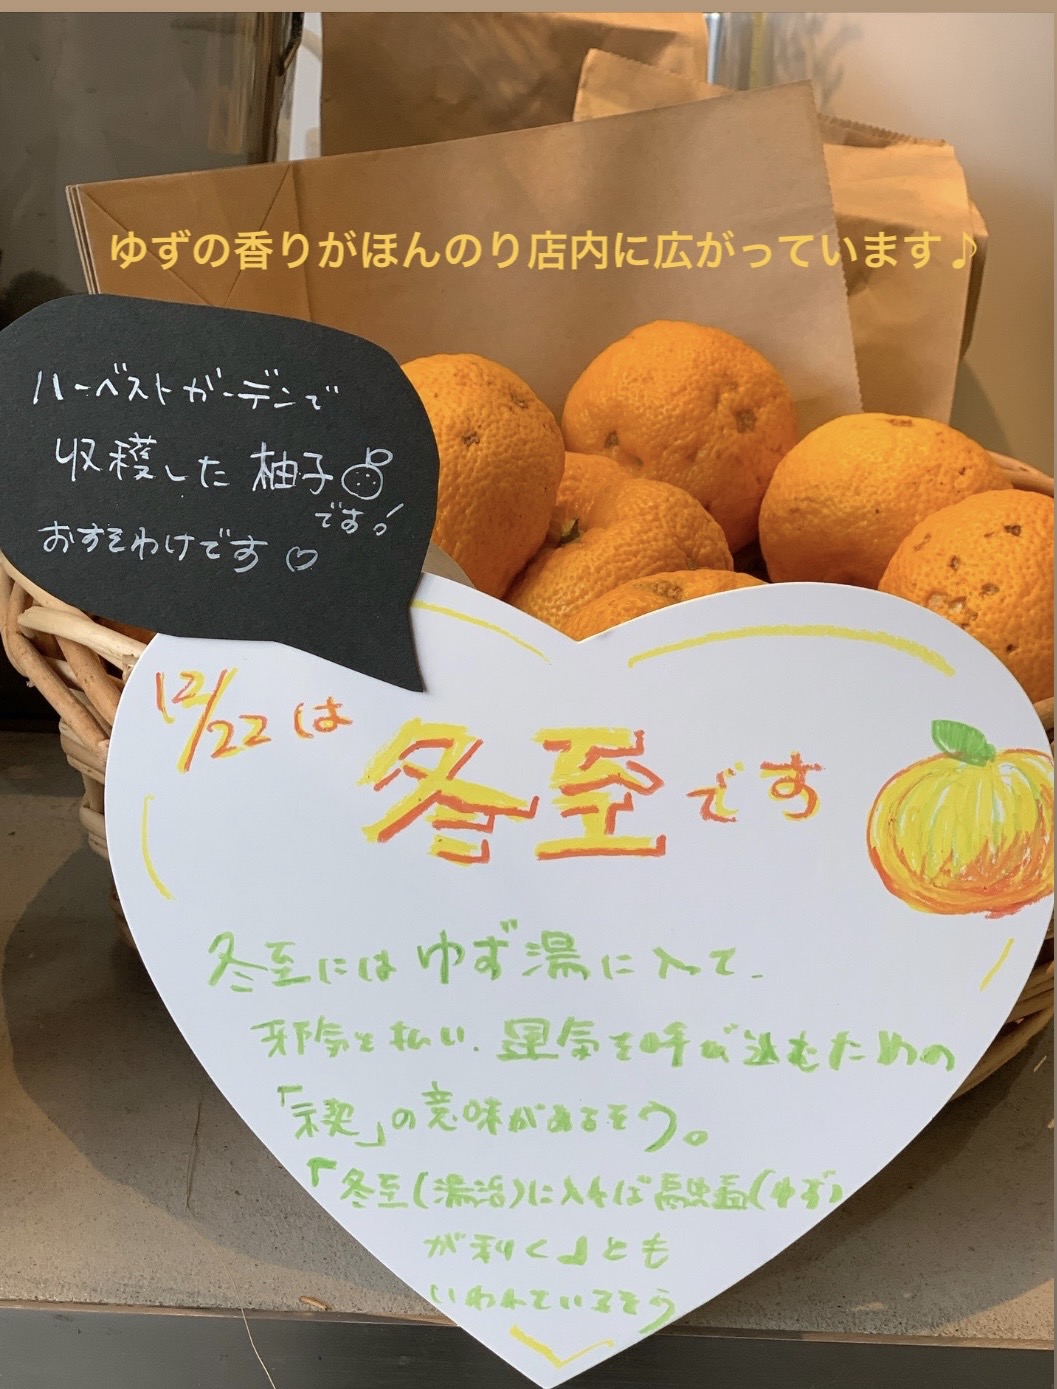 ゆずの香りがほんのり店内に広がっています♪
ハーベストガーデンで
収穫した柚子
です!
おすそわけです♡
12/22は
冬至です
冬至にはゆず湯に入って、
邪気を払い、運気を呼び込むための
「禊」の意味があるそう。
「冬至(湯治)に入れば融通(ゆず)
が利く」とも
いわれているそう